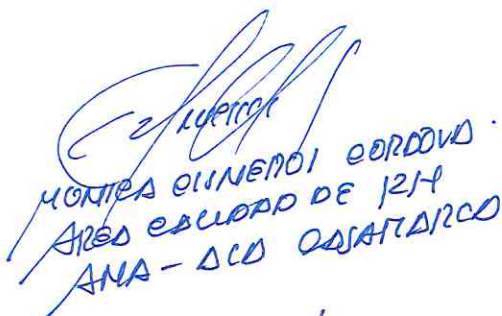 MONICA CISNEROS CORDOVA.
AREA CALIDAD DE RH
ANA - ACA CAJAMARCA